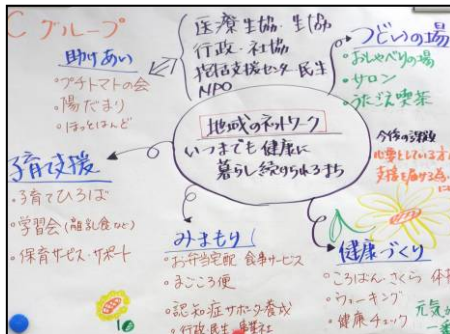 Cグループ
助けあい
・プチトマトの会
・陽だまり
・ほっとはんど
医療生協・生協
行政・社協
包括支援センター・民生
NPO
つどいの場
・おしゃべりの場
・サロン
・うたごえ喫茶
地域のネットワーク
いつまでも健康に
暮らし続けられるまち
今後の課題
必要としている
支援を届ける為
子育て支援
・子育てひろば
・学習会(離乳食など)
・保育サービス・サポート
みまもり
・お弁当宅配 食事サービス
・まごころ便
・認知症サポーター養成
・行政 民生
健康づくり
・ころばん・さくら 体操
・ウォーキング
・健康チェック
元気が